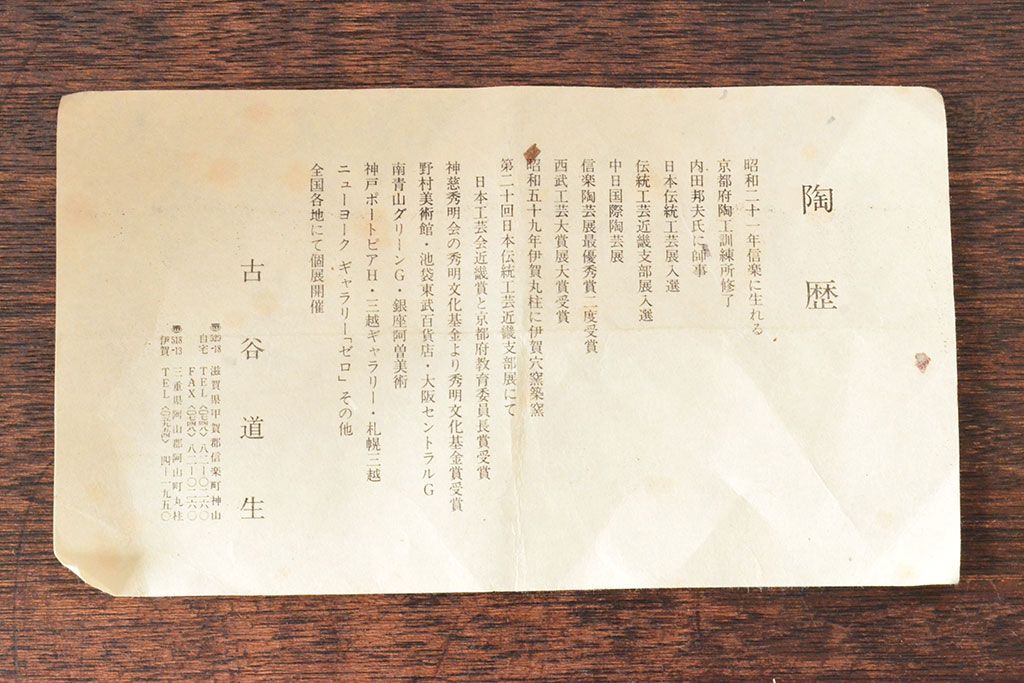 陶歴
昭和二十一年信楽に生れる
京都府陶工訓練所修了
内田邦夫氏に師事
日本伝統工芸展入選
伝統工芸近畿支部展入選
中日国際陶芸展
信楽陶芸展最優秀賞二度受賞
西武工芸大賞展大賞受賞
昭和五十九年伊賀丸柱に伊賀穴窯築窯
第二十回日本伝統工芸近畿支部展にて
日本工芸会近畿賞と京都府教育委員長賞受賞
神慈秀明会の秀明文化基金より秀明文化基金賞受賞
野村美術館・池袋東武百貨店・大阪セントラルG
南青山グリーンG・銀座阿曽美術
神戸ポートピアH・三越ギャラリー・札幌三越
ニューヨーク ギャラリー「ゼロ」その他
全国各地にて個展開催
古谷道生
〠529-18 滋賀県甲賀郡信楽町神山
自宅 TEL〈〇七四八〉八二―〇二六〇
FAX〈〇七四八〉八二―〇二六〇
〠518-13 三重県阿山郡阿山町丸柱
伊賀 TEL